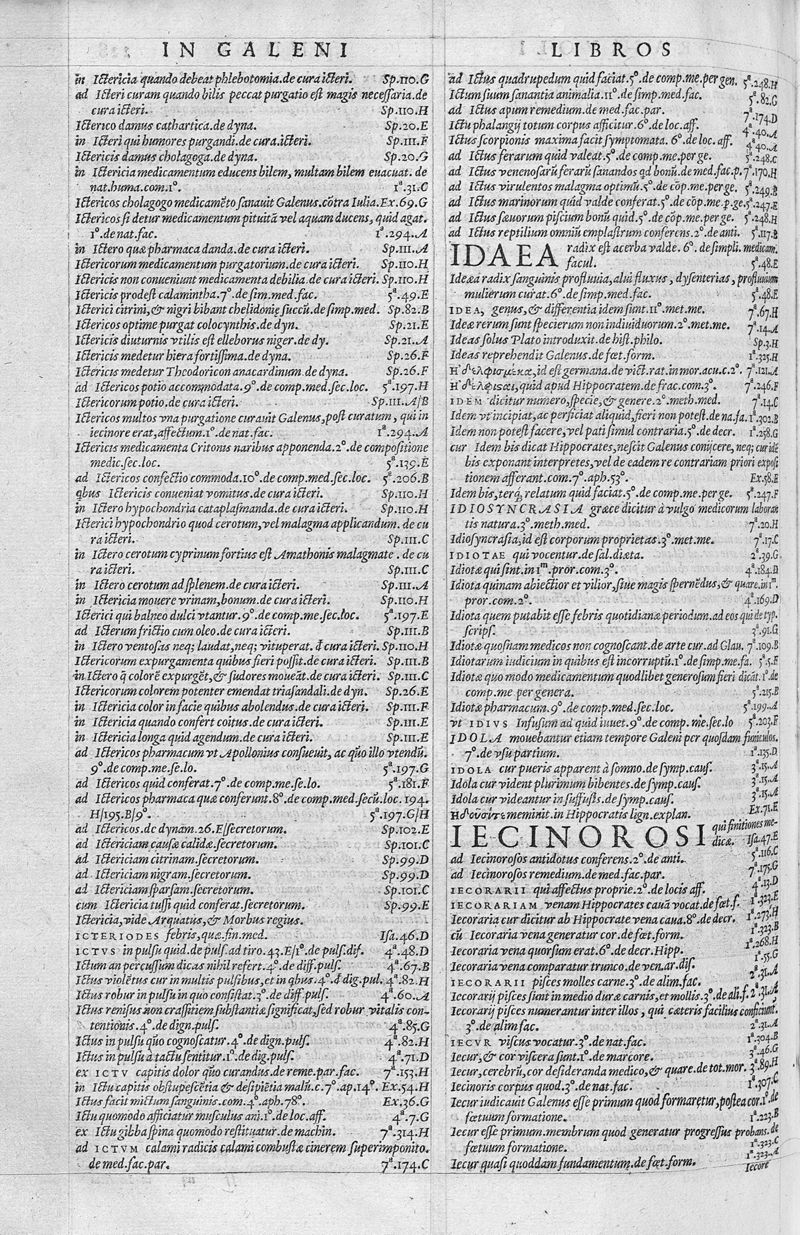 IN GALENI
in Ictericia quando debeat phlebotomia.de cura icteri. Sp.110.G
ad Icteri curam quando bilis peccat purgatio est magis necessaria.de
cura icteri. Sp.110.H
Icterico damus cathartica.de dyna. Sp.20.E
in Icteri qui humores purgandi.de cura.icteri. Sp.111.F
Ictericis damus cholagoga.de dyna. Sp.20.G
in Ictericia medicamentum educens bilem, multam bilem euacuat. de
nat.huma.com.1º. 1ª.31.C
Ictericos cholagogo medicamẽto sanauit Galenus.cõtra Iulia. Ex.69.G
Ictericos si detur medicamentum pituitã vel aquam ducens, quid agat.
1º.de nat.fac. 1ª.294.A
in Ictero quæ pharmaca danda.de cura icteri. Sp.111.A
Ictericorum medicamentum purgatorium.de cura icteri. Sp.110.H
Ictericis non conueniunt medicamenta debilia.de cura icteri. Sp.110.H
Ictericis prodest calamintha.7º.de sim.med.fac. 5ª.49.E
Icterici citrini,& nigri bibant chelidonię succũ.de simp.med. Sp.82.B
Ictericos optime purgat colocynthis.de dyn. Sp.21.E
Ictericis diuturnis vtilis est elleborus niger.de dy. Sp.21.A
Ictericis medetur hiera fortissima.de dyna. Sp.26.F
Ictericis medetur Theodoricon anacardinum.de dyna. Sp.26.F
ad Ictericos potio accomnodata.9º.de comp.med.sec.loc. 5ª.197.H
Ictericorum potio.de cura icteri. Sp.111.A/B
Ictericos multos vna purgatione curauit Galenus,post curatum, qui in
iecinore erat,affectum.1º.de nat.fac. 1ª.294.A
Ictericis medicamenta Critonis naribus apponenda.2º.de compositione
medic.sec.loc. 5ª.139.E
ad Ictericos confectio commoda.10º.de comp.med.sec.loc. 5ª.206.B
qbus Ictericis conueniat vomitus.de cura icteri. Sp.110.H
in Ictero hypochondria cataplasmanda.de cura icteri. Sp.110.H
Icterici hypochondrio quod cerotum,vel malagma applicandum.de cu
ra icteri. Sp.111.C
in Ictero cerotum cyprinum fortius est Amathonis malagmate.de cu
ra icteri. Sp.111.C
in Ictero cerotum ad splenem.de cura icteri. Sp.111.A
in Ictericia mouere vrinam,bonum.de cura icteri. Sp.110.H
Icterici qui balneo dulci vtantur.9º.de comp.me.sec.loc. 5ª.197.E
ad Icterum frictio cum oleo.de cura icteri. Sp.111.B
in Ictero ventosas neq; laudat,neq; vituperat. đ cura icteri. Sp.110.H
Ictericorum expurgamenta quibus fieri possit.de cura icteri. Sp.111.B
in Ictero q̃ colorẽ expurgẽt,& sudores moueãt.de cura icteri. Sp.111.C
Ictericorum colorem potenter emendat triasandali.de dyn. Sp.26.E
in Ictericia color in facie quibus abolendus.de cura icteri. Sp.111.F
in Ictericia quando confert coitus.de cura icteri. Sp.111.E
in Ictericia longa quid agendum.de cura icteri. Sp.111.E
ad Ictericos pharmacum vt Apollonius consueuit, ac quo illo vtendũ.
9º.de comp.me.se.lo. 5ª.197.G
ad Ictericos quid conferat.7º.de comp.me.se.lo. 5ª.181.F
ad Ictericos pharmaca quæ conferunt.8º.de comp.med.secũ.loc.194.
H/195.B/9º. 5ª.197.G/H
ad Ictericos.de dynam.26.E/secretorum. Sp.102.E
ad Ictericiam causæ calidæ.secretorum. Sp.101.C
ad Ictericiam citrinam.secretorum. Sp.99.D
ad Ictericiam nigram.secretorum. Sp.99.D
ad Ictericiam sparsam.secretorum. Sp.101.C
cum Ictericia tussi quid conferat.secretorum. Sp.99.E
Ictericia,vide Arquatus,& Morbus regius.
ICTERIODES febris,quæ.fin.med. Isa.46.D
ICTVS in pulsu quid.de puls.ad tiro.43.E/1º.de puls.dif. 4ª.48.D
Ictum an percussum dicas nihil refert.4º.de diff.puls. 4ª.67.B
Ictus violẽtus cur in multis pulsibus,et in qbus.4º.đ dig.pul. 4ª.82.H
Ictus robur in pulsu in quo consistat.3º.de diff.puls. 4ª.60.A
Ictus renisus non crassitiem substantiæ significat,sed robur vitalis con-
tentionis.4º.de dign.puls. 4ª.85.G
Ictus in pulsu quo cognoscatur.4º.de dign.puls. 4ª.82.H
Ictus in pulsu à tactu sentitur.1º.de dig.puls. 4ª.71.D
ex ICTV capitis dolor quo curandus.de reme.par.fac. 7ª.153.H
in Ictu capitis obstupescẽtia & desipiẽtia malũ.c.7º.ap.14º. Ex.54.H
Ictus facit mictum sanguinis.com.4º.aph.78º. Ex.36.G
Ictu quomodo afficiatur musculus ani.1º.de loc.aff. 4ª.7.G
ex Ictu gibba spina quomodo restituatur.de machin. 7ª.314.H
ad ICTVM calami radicis calami combustæ cinerem superimponito.
de med.fac.par. 7ª.174.C
LIBROS
ad Ictus quadrupedum quid faciat.5º.de comp.me.per gen. 5ª.248.H
Ictum suum sanantia animalia.11º.de simp.med.fac. 5ª.82.G
ad Ictus apum remedium.de med.fac.par. 7ª.174.D
Ictu phalangij totum corpus afficitur.6º.de loc.aff. 4ª.40.A
Ictus scorpionis maxima facit symptomata.6º.de loc.aff. 4ª.40.A
ad Ictus ferarum quid valeat.5º.de comp.me.per ge. 5ª.248.C
ad Ictus venenosarũ ferarũ sanandos qd bonũ.de med.fac.p. 7ª.170.H
ad Ictus virulentos malagma optimũ.5º.de cõp.me.per ge. 5ª.249.B
ad Ictus marinorum quid valde conferat.5º.de cõp.me.p.ge. 5ª.247.E
ad Ictus sæuorum piscium bonũ quid.5º.de comp.me.per ge. 5ª.248.H
ad Ictus reptilium omniũ emplastrum conferens.2º.de anti. 5ª.117.B
IDAEA radix est acerba valde. 6º.de simpli.medicam.
facul. 5ª.48.E
Idææ radix sanguinis profluuia,alui fluxus, dysenterias, profluuium
mulierum curat.6º.de simp.med.fac. 5ª.48.E
IDEA, genus,& differentia idem sunt.11º.met.me. 7ª.67.H
Ideæ rerum sunt specierum non indiuiduorum.2º.met.me. 7ª.14.A
Ideas solus Plato introduxit.de hist.philo. Sp.3.H
Ideas reprehendit Galenus.de fœt.form. 1ª.325.H
id est germana.de vict.rat.in mor.acu.c.2º. 7ª.121.A
quid apud Hippocratem.de frac.com.3º. 7ª.246.F
IDEM dicitur numero,specie,& genere.2º.meth.med. 7ª.14.C
Idem vt incipiat, ac perficiat aliquid,fieri non potest.de na.fa. 1ª.302.B
Idem non potest facere,vel pati simul contraria.5º.de decr. 1ª.258.G
cur Idem bis dicat Hippocrates,nescit Galenus conijcere, neq; cur idẽ
bis exponant interpretes,vel de eadem re contrariam priori exposi
tionem afferant.com.7º.aph.53º. Ex.58.E
Idem bis,terq̃ relatum quid faciat.5º.de comp.me.per ge. 5ª.247.F
IDIOSYNCRASIA græce dicitur à vulgo medicorum laboran
tis natura.3º.meth.med. 7ª.20.H
Idiosyncrasia,id est corporum proprietas.3º.met.me. 7ª.17.C
IDIOTAE qui vocentur.de sal.diæta. 2ª.39.G
Idiotæ qui sint.in 1ᵐ.pror.com.3º. 4ª.184.D
Idiota quinam abiectior et vilior,siue magis spernẽdus,& quare.in 1ᵐ.
pror.com.2º. 4ª.169.D
Idiota quem putabit esse febris quotidianæ periodum.ad eos qui de typ.
scrips. 3ª.91.G
Idiotæ quosnam medicos non cognoscant.de arte cur.ad Glau. 7ª.109.B
Idiotarum iudicium in quibus est incorruptũ.1º.de simp.me.fa. 5ª.5.E
Idiotæ quo modo medicamentum quodlibet generosum fieri dicãt.1º.de
comp.me per genera. 5ª.215.B
Idiotæ pharmacum.9º.de comp.med.sec.loc. 5ª.199.A
vt IDIVS Infusum ad quid iuuet.9º.de comp.me.sec.lo 5ª.203.F
IDOLA mouebantur etiam tempore Galeni per quosdam funiculos.
7º.de vsu partium. 1ª.135.D
IDOLA cur pueris apparent à somno.de symp.caus. 3ª.15.A
Idola cur vident plurimum bibentes.de symp.caus. 3ª.15.A
Idola cur videantur in suffusis.de symp.caus. 3ª.15.A
meminit.in Hippocratis lign.explan. Ex.71.E
IECINOROSI qui finitiones me-
dicæ. Isa.47.E
ad Iecinorosos antidotus conferens.2º.de anti. 5ª.116.C
ad Iecinorosos remedium.de med.fac.par. 7ª.175.G
IECORARII qui affectus proprie.2º.de locis aff. 4ª.13.D
IECORARIAM venam Hippocrates cauã vocat.de fœt.f. 1ª.323.E
Iecoraria cur dicitur ab Hippocrate vena caua.8º.de decr. 1ª.273.H
cũ Iecoraria vena generatur cor.de fœt.form. 1ª.323.B
Iecoraria vena quorsum erat.6º.de decr.Hipp. 1ª.268.H
Iecoraria vena comparatur trunco.de ven.ar.dis. 1ª.55.G
IECORARII pisces molles carne.3º.de alim.fac. 2ª.31.A
Iecorarij pisces sunt in medio duræ carnis,et mollis.3º.de ali.f. 2ª.31.A
Iecorarij pisces numerantur inter illos, qui cæteris facilius conficiunt.
3º.de alim fac. 2ª.31.A
IECVR viscus vocatur.3º.de nat.fac. 1ª.304.B
Iecur,& cor viscera sunt.1º.de marcore. 3ª.46.G
Iecur,cerebrũ,cor desideranda medico,& quare.de tot.mor. 3ª.89.H
Iecinoris corpus quod.3º.de nat.fac. 1ª.307.C
Iecur iudicauit Galenus esse primum quod formaretur,postea cor.1º.de
fœtuum formatione. 1ª.223.B
Iecur esse primum membrum quod generatur progressus probans.de
fœtuum formatione. 1ª.323.C
Iecur quasi quoddam fundamentum.de fœt.form. 1ª.323.A
Iecore